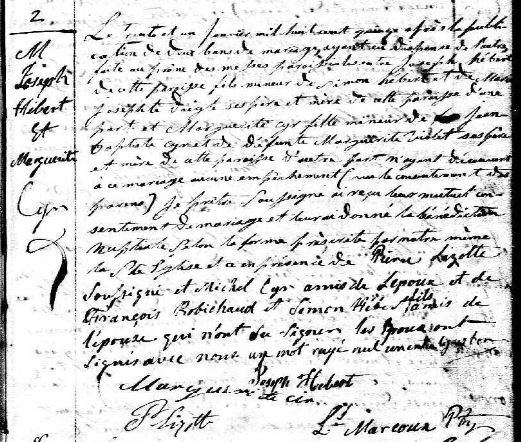 2
M
Joseph
Hébert
Et
Marguerite
Cyr
Le trente et un Janvier mil huit cent quinze après la publi
cation de deux bans de mariage, ayant eu dispense de l'autre,
faite au prône des messes paroissiales entre Joseph Hébert
de cette paroisse fils mineur de Simon hébert et de Marie
Josephte Daigle ses père et mère de cette paroisse d'une
part et Marguerite Cyr fille mineur de Jean
Baptiste Cyr et de défunte Marguerite Violet ses père
et mère de cette paroisse d'autre part n'ayant découvert
à ce mariage aucun empêchement (vu le consentement des
parens) Je prêtre Soussigné ai reçu leur mutuel con
sentement de mariage et leur ai donné la bénédiction
Nuptiale Selon la forme prescrite par notre mère
la Ste Eglise et ce en présence de Pierre Lizotte
Soussigné et Michel Cyr amis de l'époux et de
François Robichaud et Simon Hébert fils amis de
l'épouse qui n'ont su signer les Epoux ont
Signés avec nous un mot rayé nul
Joseph Hebert
Marguerite cir
P Lizott
Ls Marcoux Ptre